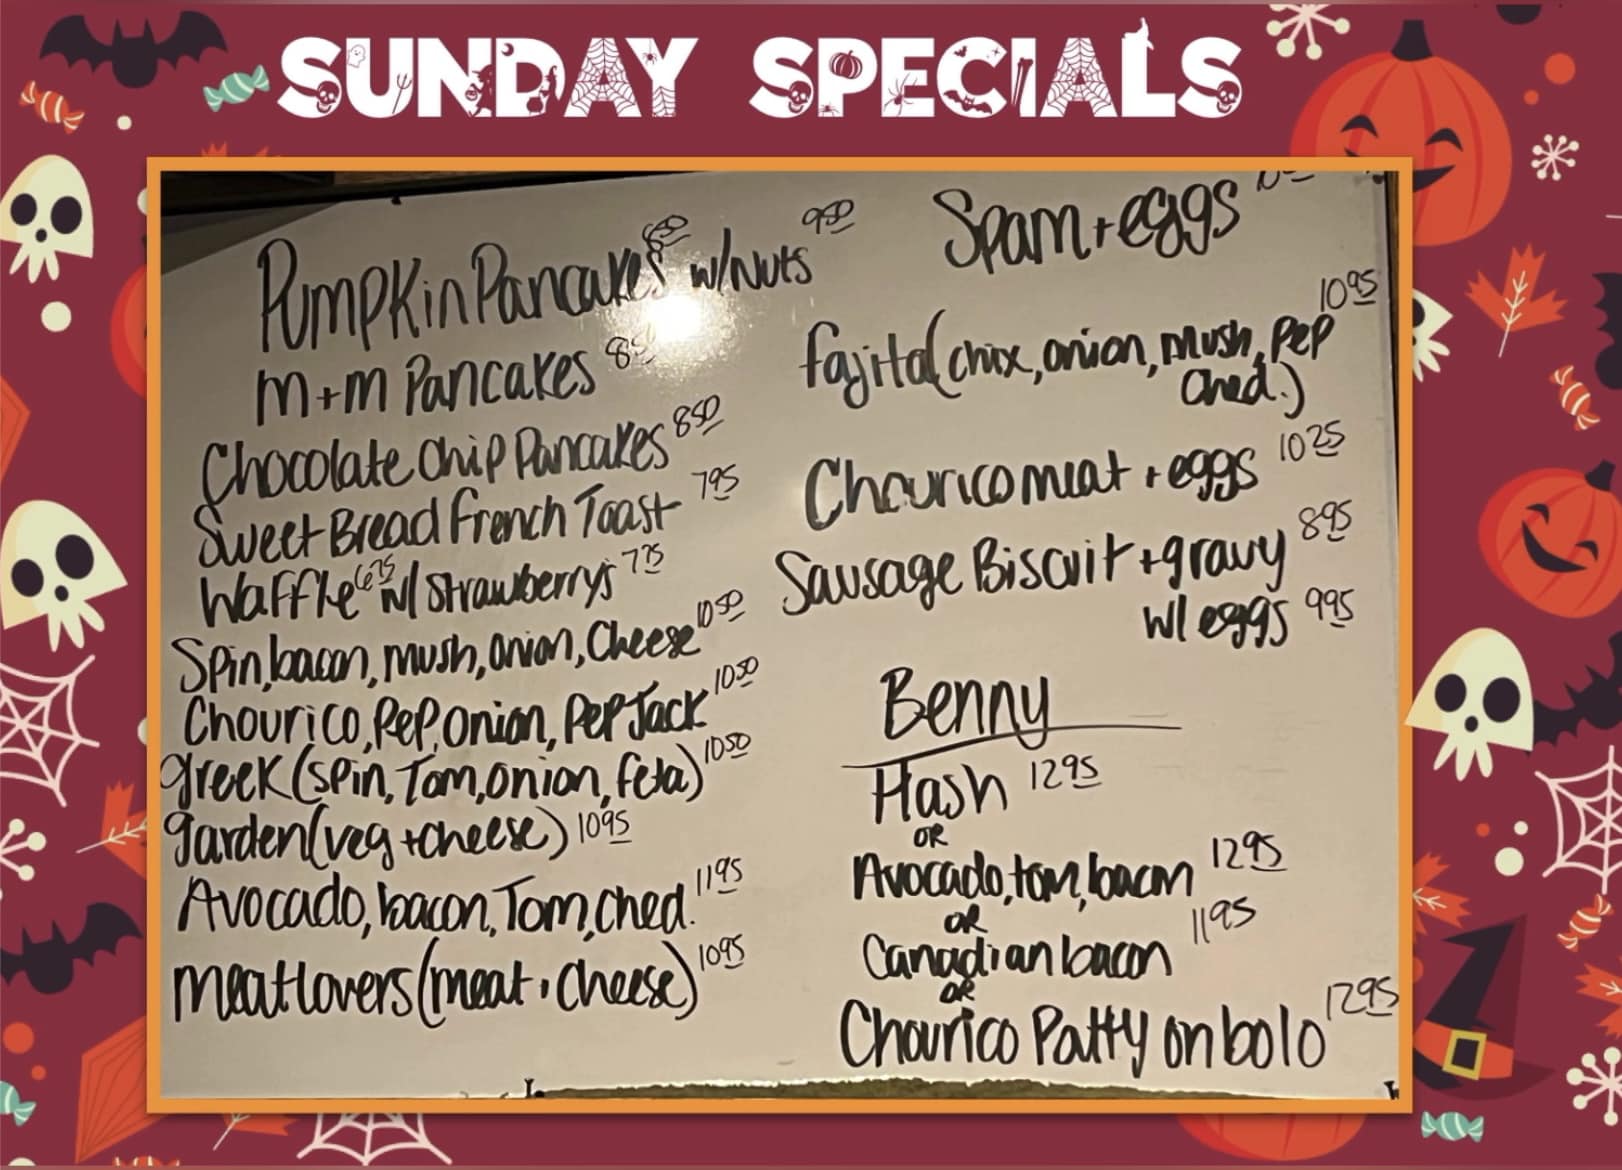 SUNDAY SPECIALS
Pumpkin Pancakes 850 w/Nuts 950
m+m Pancakes 85
Chocolate Chip Pancakes 850
Sweet Bread French Toast 795
Waffle 675 w/ Strawberrys 775
Spin, bacon, mush, onion, Cheese 1050
Chourico, Pep, onion, Pep Jack 1050
greek (spin, Tom, onion, feta) 1050
garden (veg + cheese) 1095
Avocado, bacon, Tom, ched. 1195
meatlovers (meat + cheese) 1095
Spam + eggs
fajita (chix, onion, mush, pep 1095
ched.)
Chourico meat + eggs 1025
Sausage Biscuit + gravy 895
w/ eggs 995
Benny
Hash 1295
OR
Avocado, tom, bacon 1295
OR
Canadian bacon 1195
OR
Chourico Patty on bolo 1295